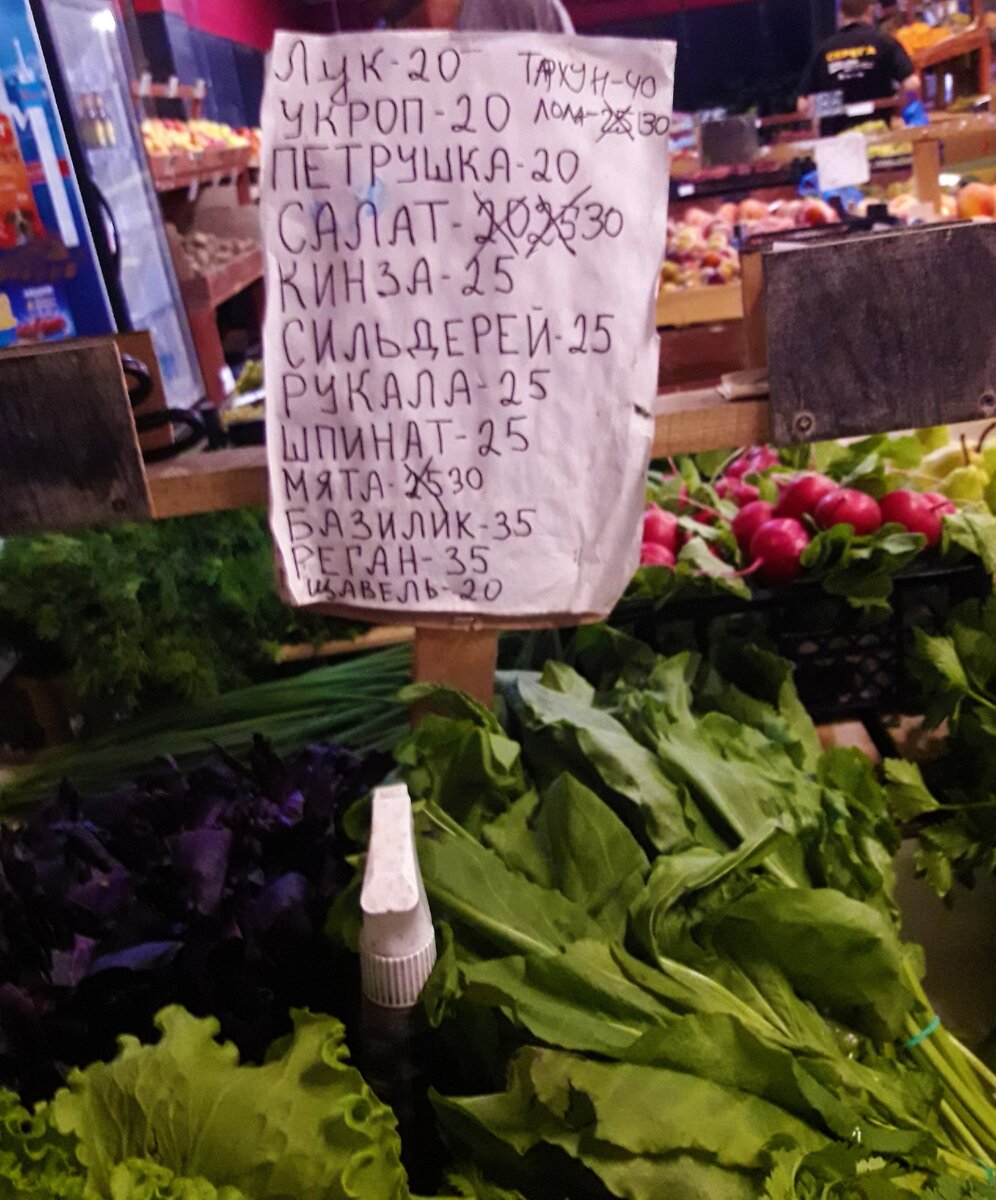 Лук-20
ТАРХУН-40
УКРОП-20
ЛОЛА-25 130
ПЕТРУШКА-20
САЛАТ-20,25 30
КИНЗА-25
СИЛЬДЕРЕЙ-25
РУКАЛА-25
ШПИНАТ-25
МЯТА-25 30
БАЗИЛИК-35
РЕГАН-35
ЩАВЕЛЬ-20